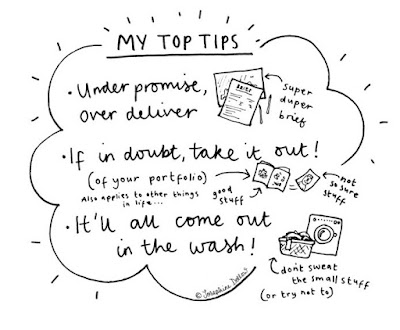 MY TOP TIPS
• Under promise,
over deliver
BRIEF
super
duper
brief
• If in doubt, take it out!
(of your portfolio)
Also applies to other things
in life...
good
stuff
not
so sure
stuff
• It'll all come out
in the wash!
don't sweat
the small stuff
(or try not to)
© Josephine Dellow